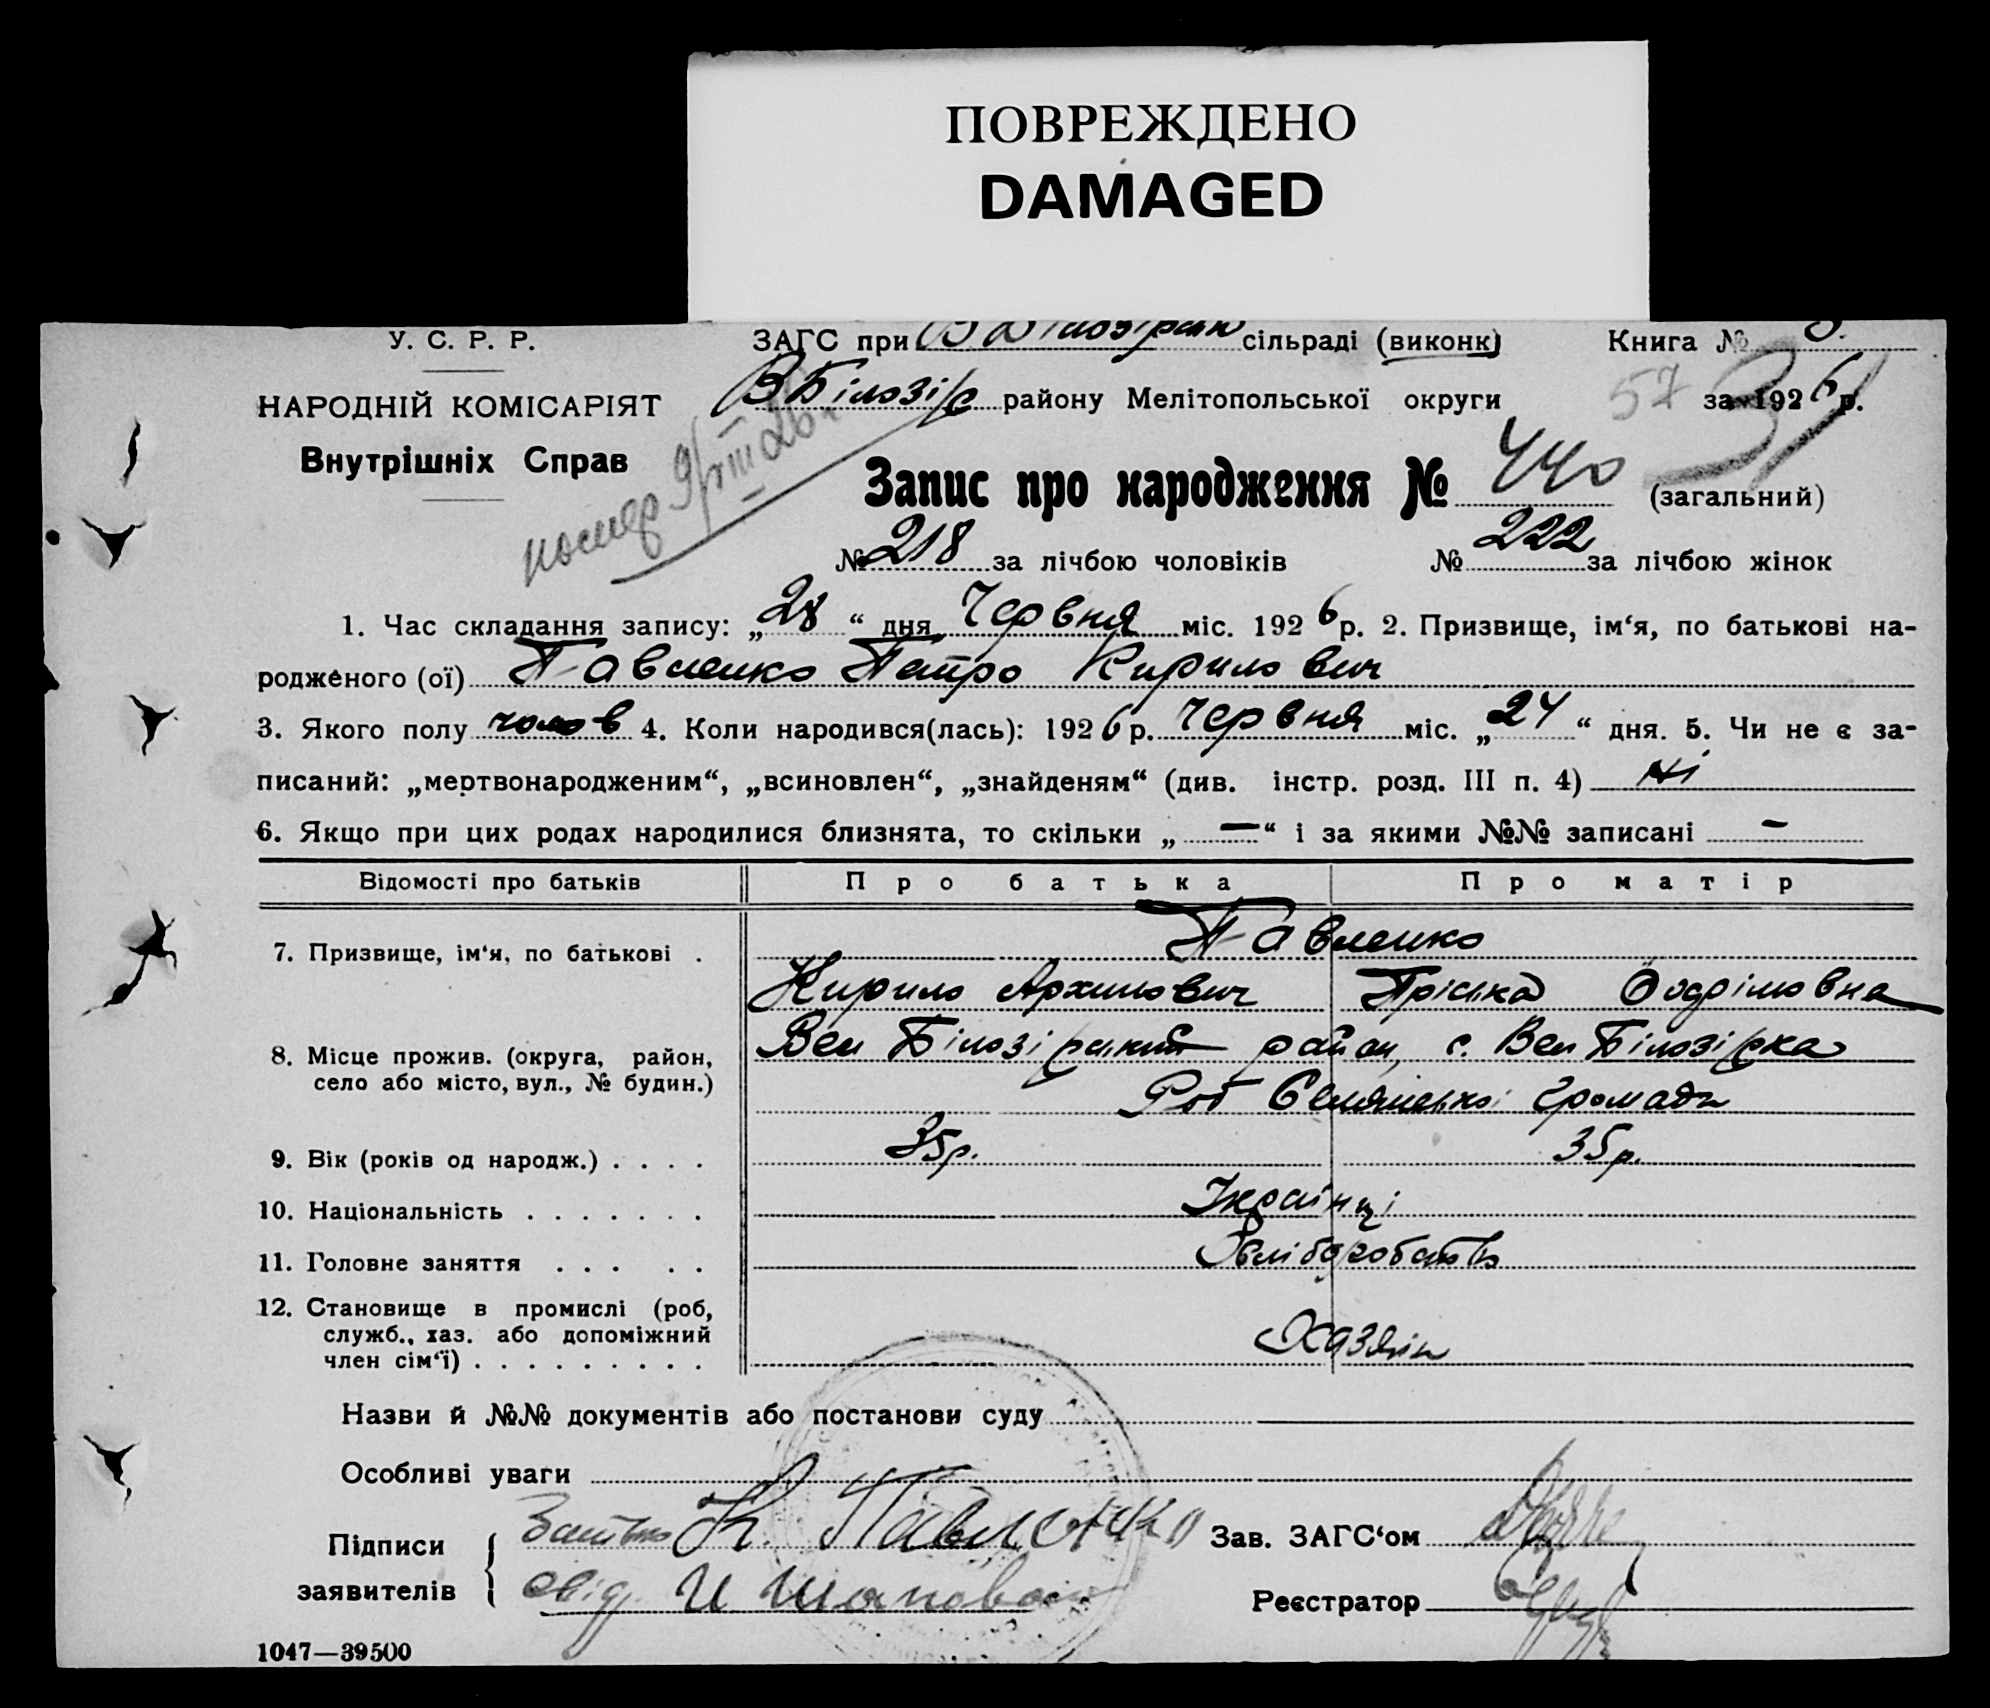 ПОВРЕЖДЕНО
DAMAGED
У. С. Р. Р.
ЗАГС при В Білозірск сільраді (виконк)
Книга № 3.
НАРОДНІЙ КОМІСАРІЯТ
Внутрішніх Справ
В Білозірс району Мелітопольської округи
57
за 1926 р.
помер 9/III 26 г
Запис про народження № 440 (загальний)
№ 218 за лічбою чоловіків № 222 за лічбою жінок
1. Час складання запису: „28“ дня Червня міс. 1926 р. 2. Призвище, ім‘я, по батькові на-
родженого (ої) Павленко Петро Кирилович
3. Якого полу чолов 4. Коли народився(лась): 1926 р. Червня міс. „24“ дня. 5. Чи не є за-
писаний: „мертвонародженим“, „всиновлен“, „знайденям“ (див. інстр. розд. III п. 4) ні
6. Якщо при цих родах народилися близнята, то скільки „—“ і за якими №№ записані -
Відомості про батьків Про батька Про матір
7. Призвище, ім‘я, по батькові . Павленко
Кирило Архипович Пріська
8. Місце прожив. (округа, район, село або місто, вул., № будин.) Вел Білозірський район, с. Вел Білозірка
Селянської громади
9. Вік (років од народж.) . . . . 35р. 35р.
10. Національність . . . . . . . Українці
11. Головне заняття . . . . . Хліборобство
12. Становище в промислі (роб, служб., хаз. або допоміжний член сім‘ї) . . . . . . . . . Хазяїн
Назви й №№ документів або постанови суду
Особливі уваги
Підписи заявителів
Батько К. Павленко
свід. И Шаповал
Зав. ЗАГС‘ом
Реєстратор
1047—39500